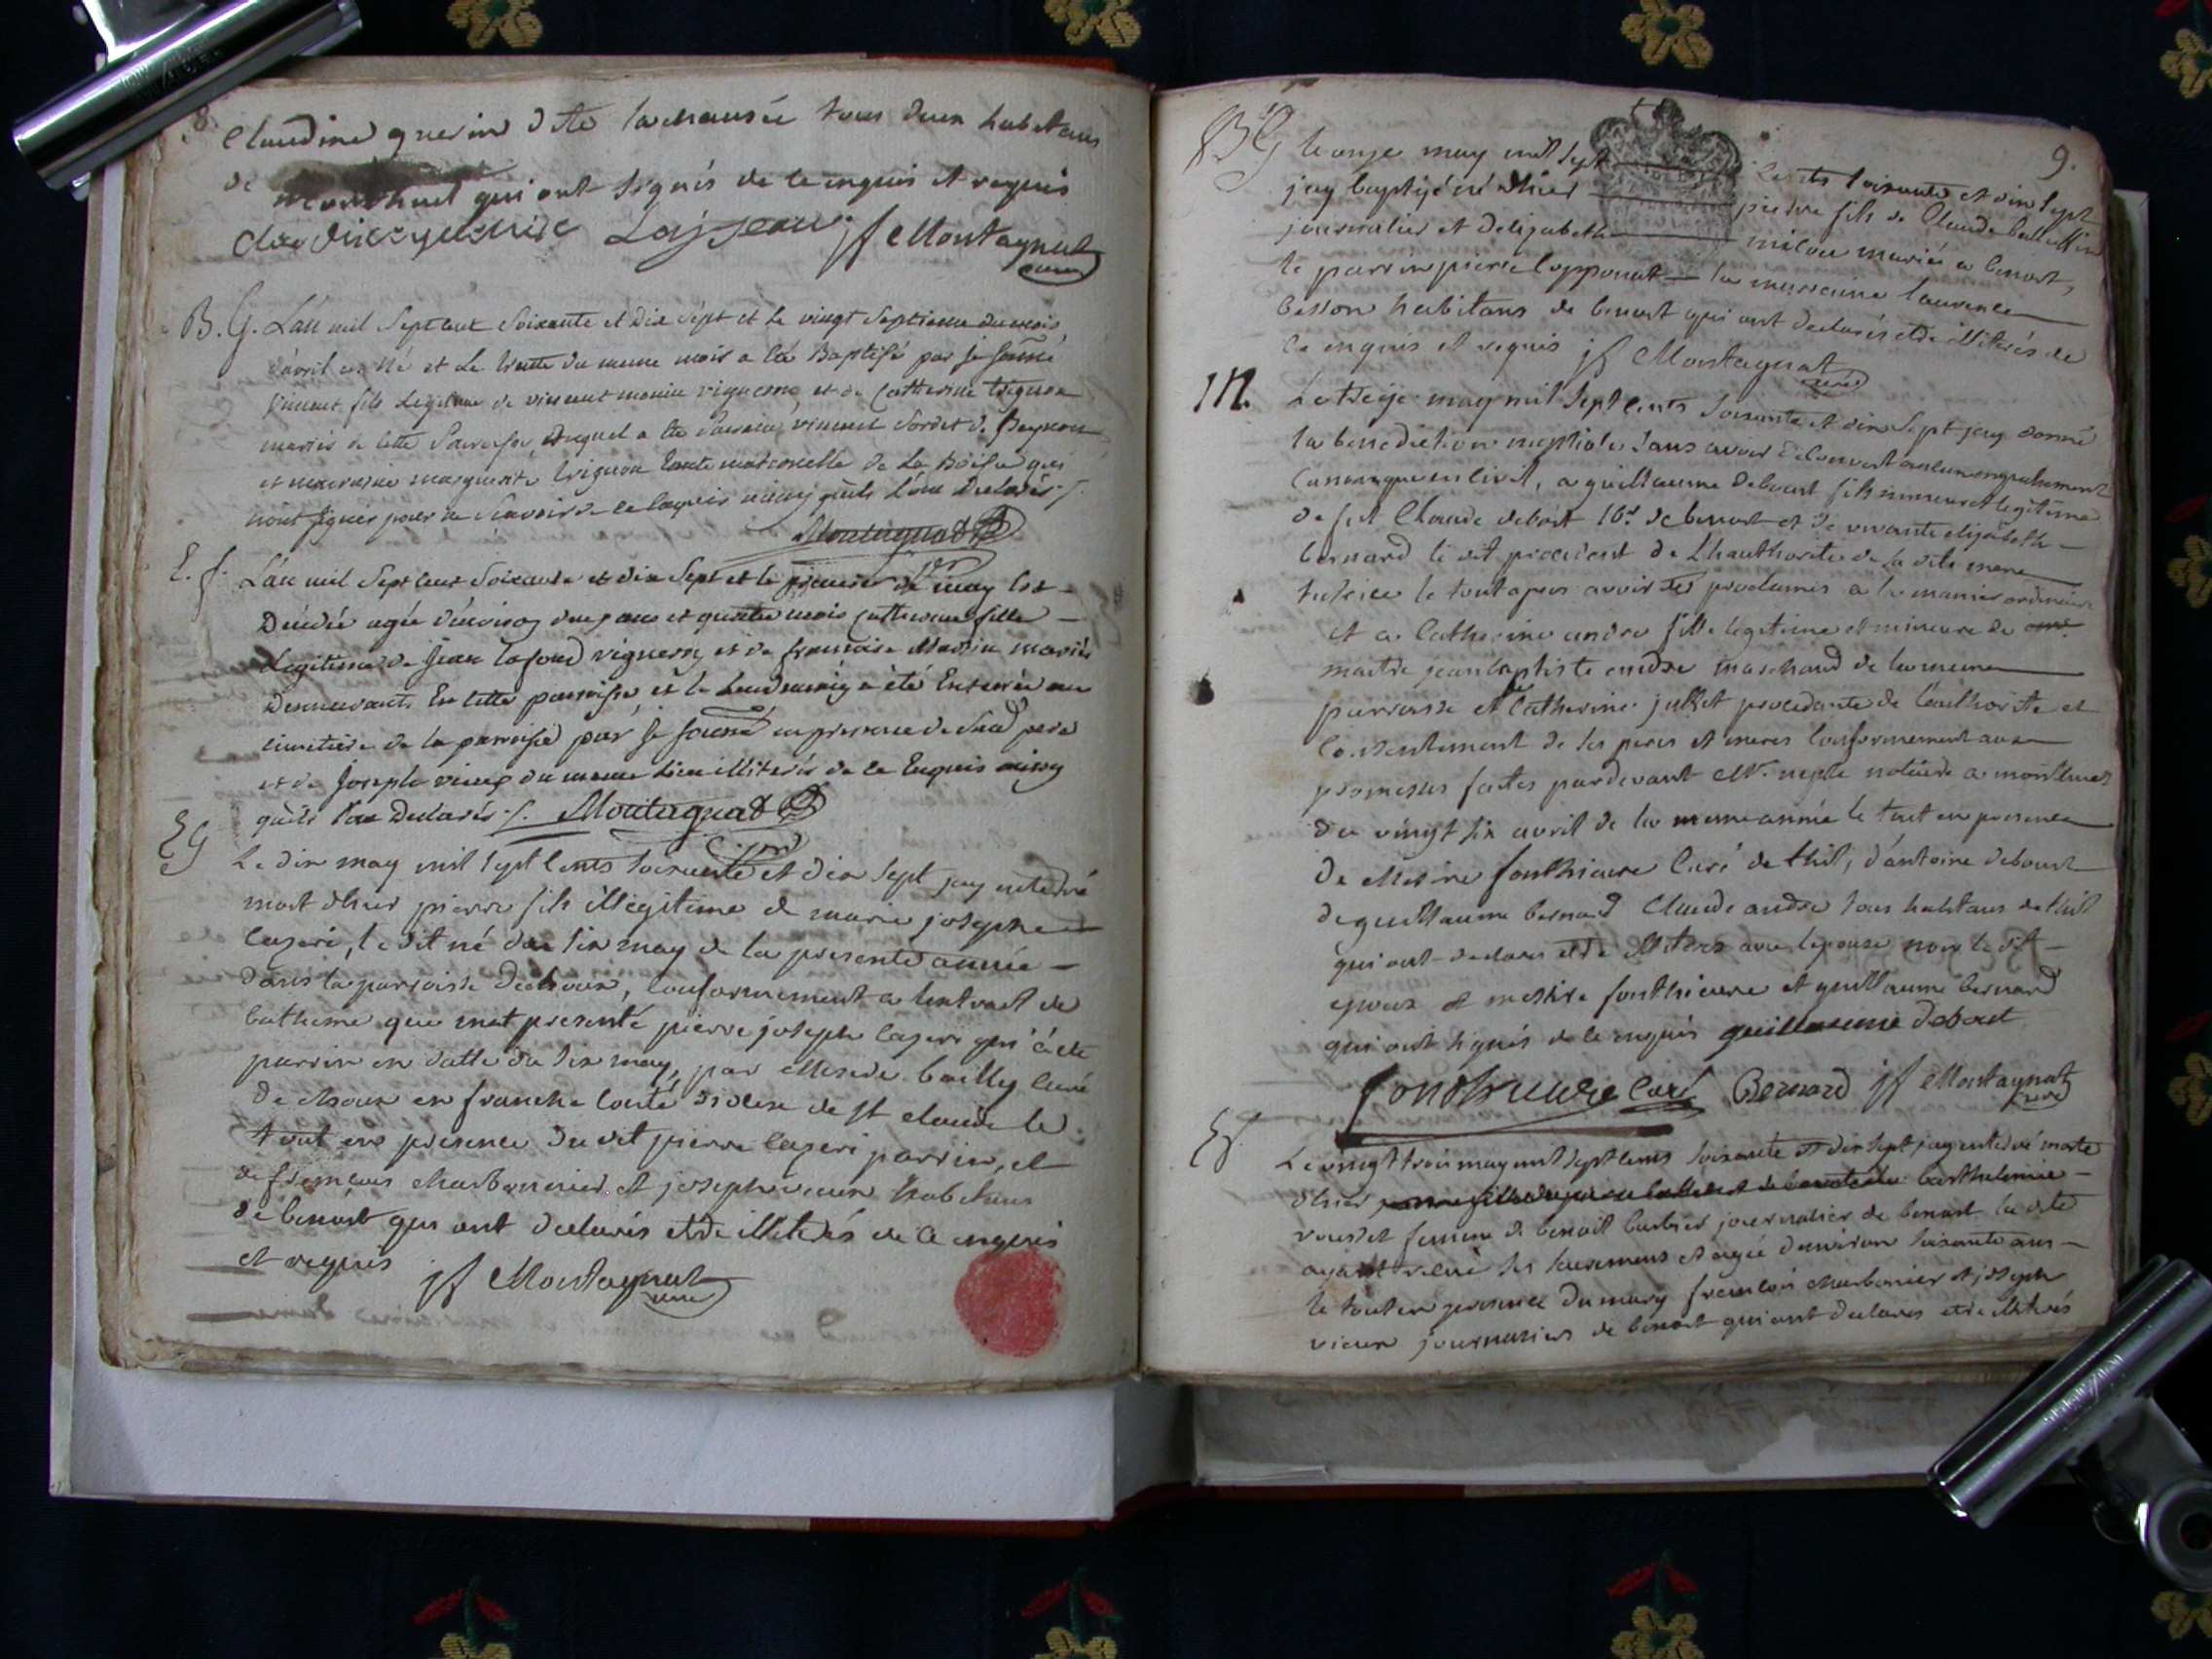 8.
Claudine guerin dite la chausée tous deux habitans
de montluel qui ont signés de ce enquis et requis
claudine guerin Lajseau jf Montagnat
curé
B. G. L'an mil Sept cent Soixante et Dix sept et le vingt Septieme du mois
d'avril est né et Le trente du meme mois a été Baptisé par je soussigné
vincent fils Legitime de vincent monin vigneron et de Catherine trignon
mariés de cette Paroisse, duquel a été Parrain vincent Sordet de Beynost
et marraine marguerite trignon tante maternelle de La Boisse qui
n'ont signés pour ne Scavoir de ce Enquis ainsy quils L'ont Declarés ./.
Montagnat
E. f. L'an mil Sept cent Soixante et dix Sept et le premier de may Est
Décédée agée d'environ deux ans et quatre mois Catherine fille
Legitime de Jean lafond vigneron et de francoise Martin mariés
Demeurants En cette paroisse, et le Lendemain a été Enterrée au
cimetière de la paroisse par je soussé en presence de Sud. pere
et de Joseph vieux du meme Lieu illiterés de ce Enquis ainsy
quils L'on Declarés ./. Montagnat
E G Le dix may mil sept cents soixante et dix sept jay enterré
mort d'hier pierre fils illegitime de marie josephe
lazeri, le dit né du six may de la presente année
dans la parroisse de choux, conformement a lextrait de
bathеme que mat presenté pierre joseph lazeri qui a été
parrin en datte du six may, par Messire bailly curé
de choux en franche Conté diocese de st claude le
tout en presence du dit pierre lazeri parrin, et
de francois charbonnier et joseph vieux habitans
de benost qui ont declarés etre illiterés de ce enquis
et requis jf Montagnat
curé
9.
B G le onze may mil sept cents soixante et dix sept
jay baptizé né d'hier pierre fils de Claude balluffin
journalier et delizabeth milou mariés a benost,
le parrin pierre lopponat la marraine laurence
besson habitans de benost qui ont declarés etre illiterés de
ce enquis et requis jf Montagnat
curé
M. Le treize may mil sept cents soixante et dix sept jay donné
la benediction nuptiale sans avoir découvert aucun empechement
canonique ou civil, a guillaume debout fils mineur et legitime
de feu Claude debost de benost et de vivante elizabeth
bernard le dit procedent de Lhauthorité de la dite mere
tutrice le tout apres avoir été proclamés a la maniere ordinaire
et a Catherine andre fille legitime et mineure de
maitre jean baptiste andre marchand de la meme
parroisse et Catherine jullet procedante de l'authorité et
consentement de ses peres et meres conformement aux
promesses faites pardevant Me. nepte notaire a montluel
du vingt six avril de la meme année le tout en presence
de Messire fonthieure curé de thil, d'antoine debout
de guillaume bernard Claude andre tous habitans de thil
qui ont declarés etre illiterés avec lepouse non le dit
epoux et messire fonthieure et guillaume bernard
qui ont signés de ce enquis guillaume debout
fonthieure curé Bernard jf Montagnat
curé
E f. Le vingt trois may mil sept cens soixante et dix sept jay enterré morte
d'hier barthelemie
rousset femme de benoit barbier journalier de benost la dite
ayant recue ses sacremens et agée d'environ soixante ans
le tout en presence du mary francois charbonier et joseph
vieux journaliers de benost qui ont declarés etre illiterés